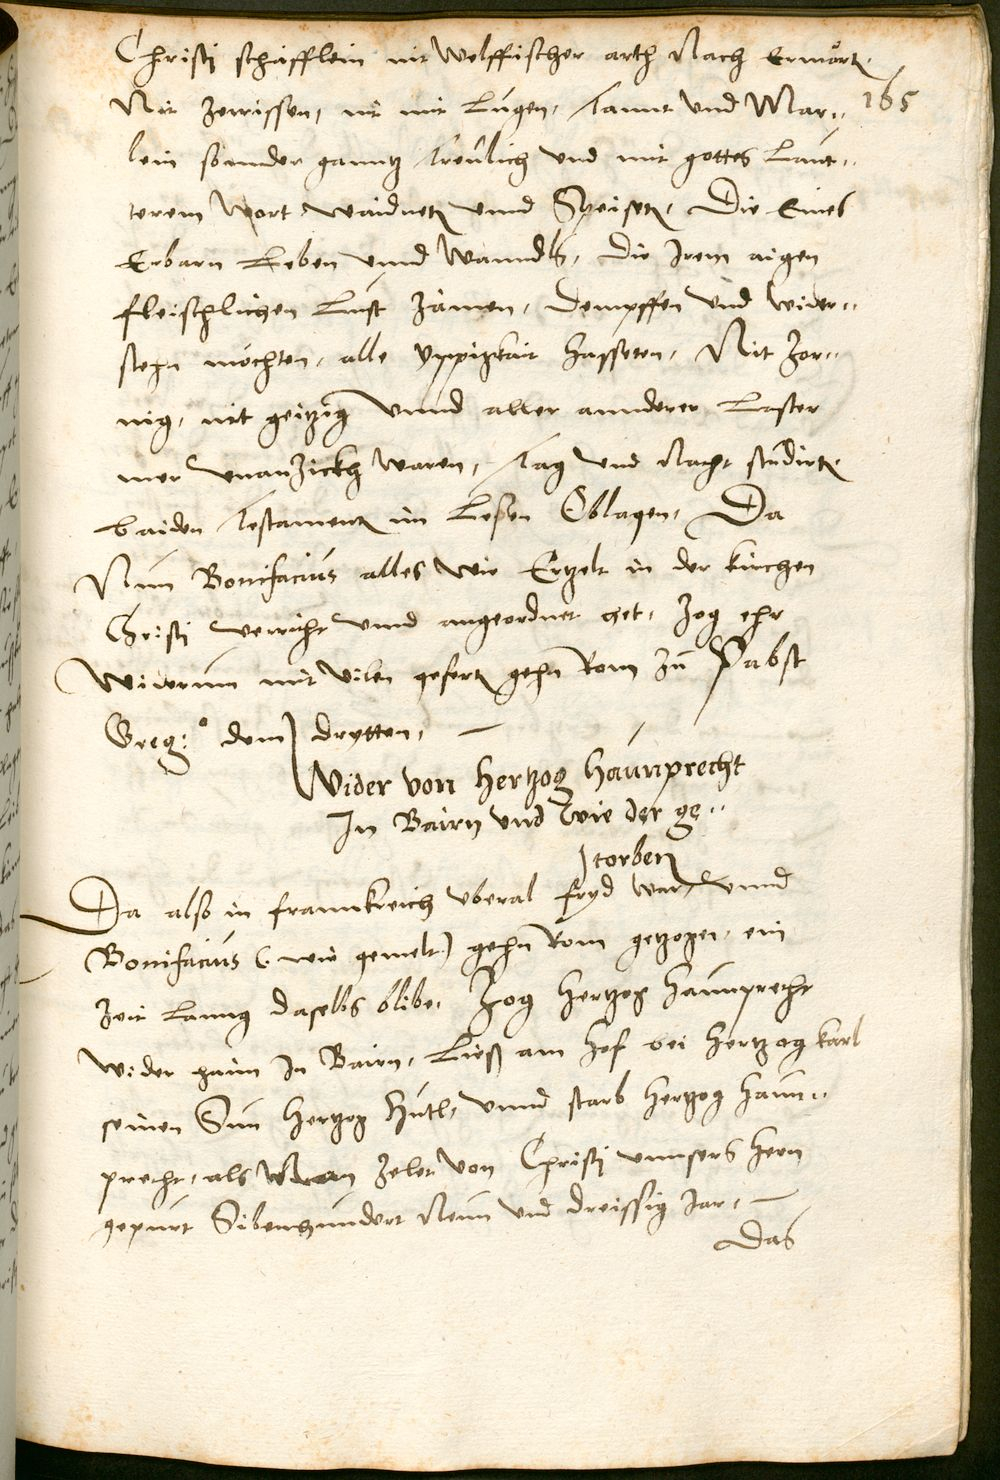 Christj schäfflein nit Wolffischer arth Nach Ermörtz
165
Nit zerrissen, nit mit Lugen, Tannt und Mar¨
lein sonnder ganntz Treulich und mit gottes Laut¨
terem Wort waidnetz unnd Speisetz, Die Eines
Erbarn Leben unnd Wanndls, die Irem aigen
fleischlichen Lust zämen, dempffen und wider¨
stehn möchten, alle Yppigkait hasseten, Nit Zor¨
nig, nit geitzig unnd aller annderer Laster
mer waren, Tag und Nacht studirtz
baiden Testamentz im Lesen Oblagen, Da
Nun Bonifacius alles wie Ertzelt in der kirchen
Christj verricht unnd angeordnet het, Zog ehr
Widerumm mit vilen gefertz gehn Rom zu Pabst
Greg:º dem dritten,
Wider von Hertzog Haunprecht
In Bairn und wie der ge¨
storben
Da also in frannkreich uberal fryd war, unnd
Bonifacius (: wie gemelt) gehn Rom getzogen, ein
Zeit Lanng daselbs blibe, Zog Hertzog Haunprecht
wider haim In Bairn, Ließ am Hof bei Hertzog karl
seinen Sun Hertzog Hutl, unnd starb Hertzog Haun¨
precht, als Man Zelet von Christj unnsers Hern
gepurt Sibenhundert Neun und dreissig Jar,
Das